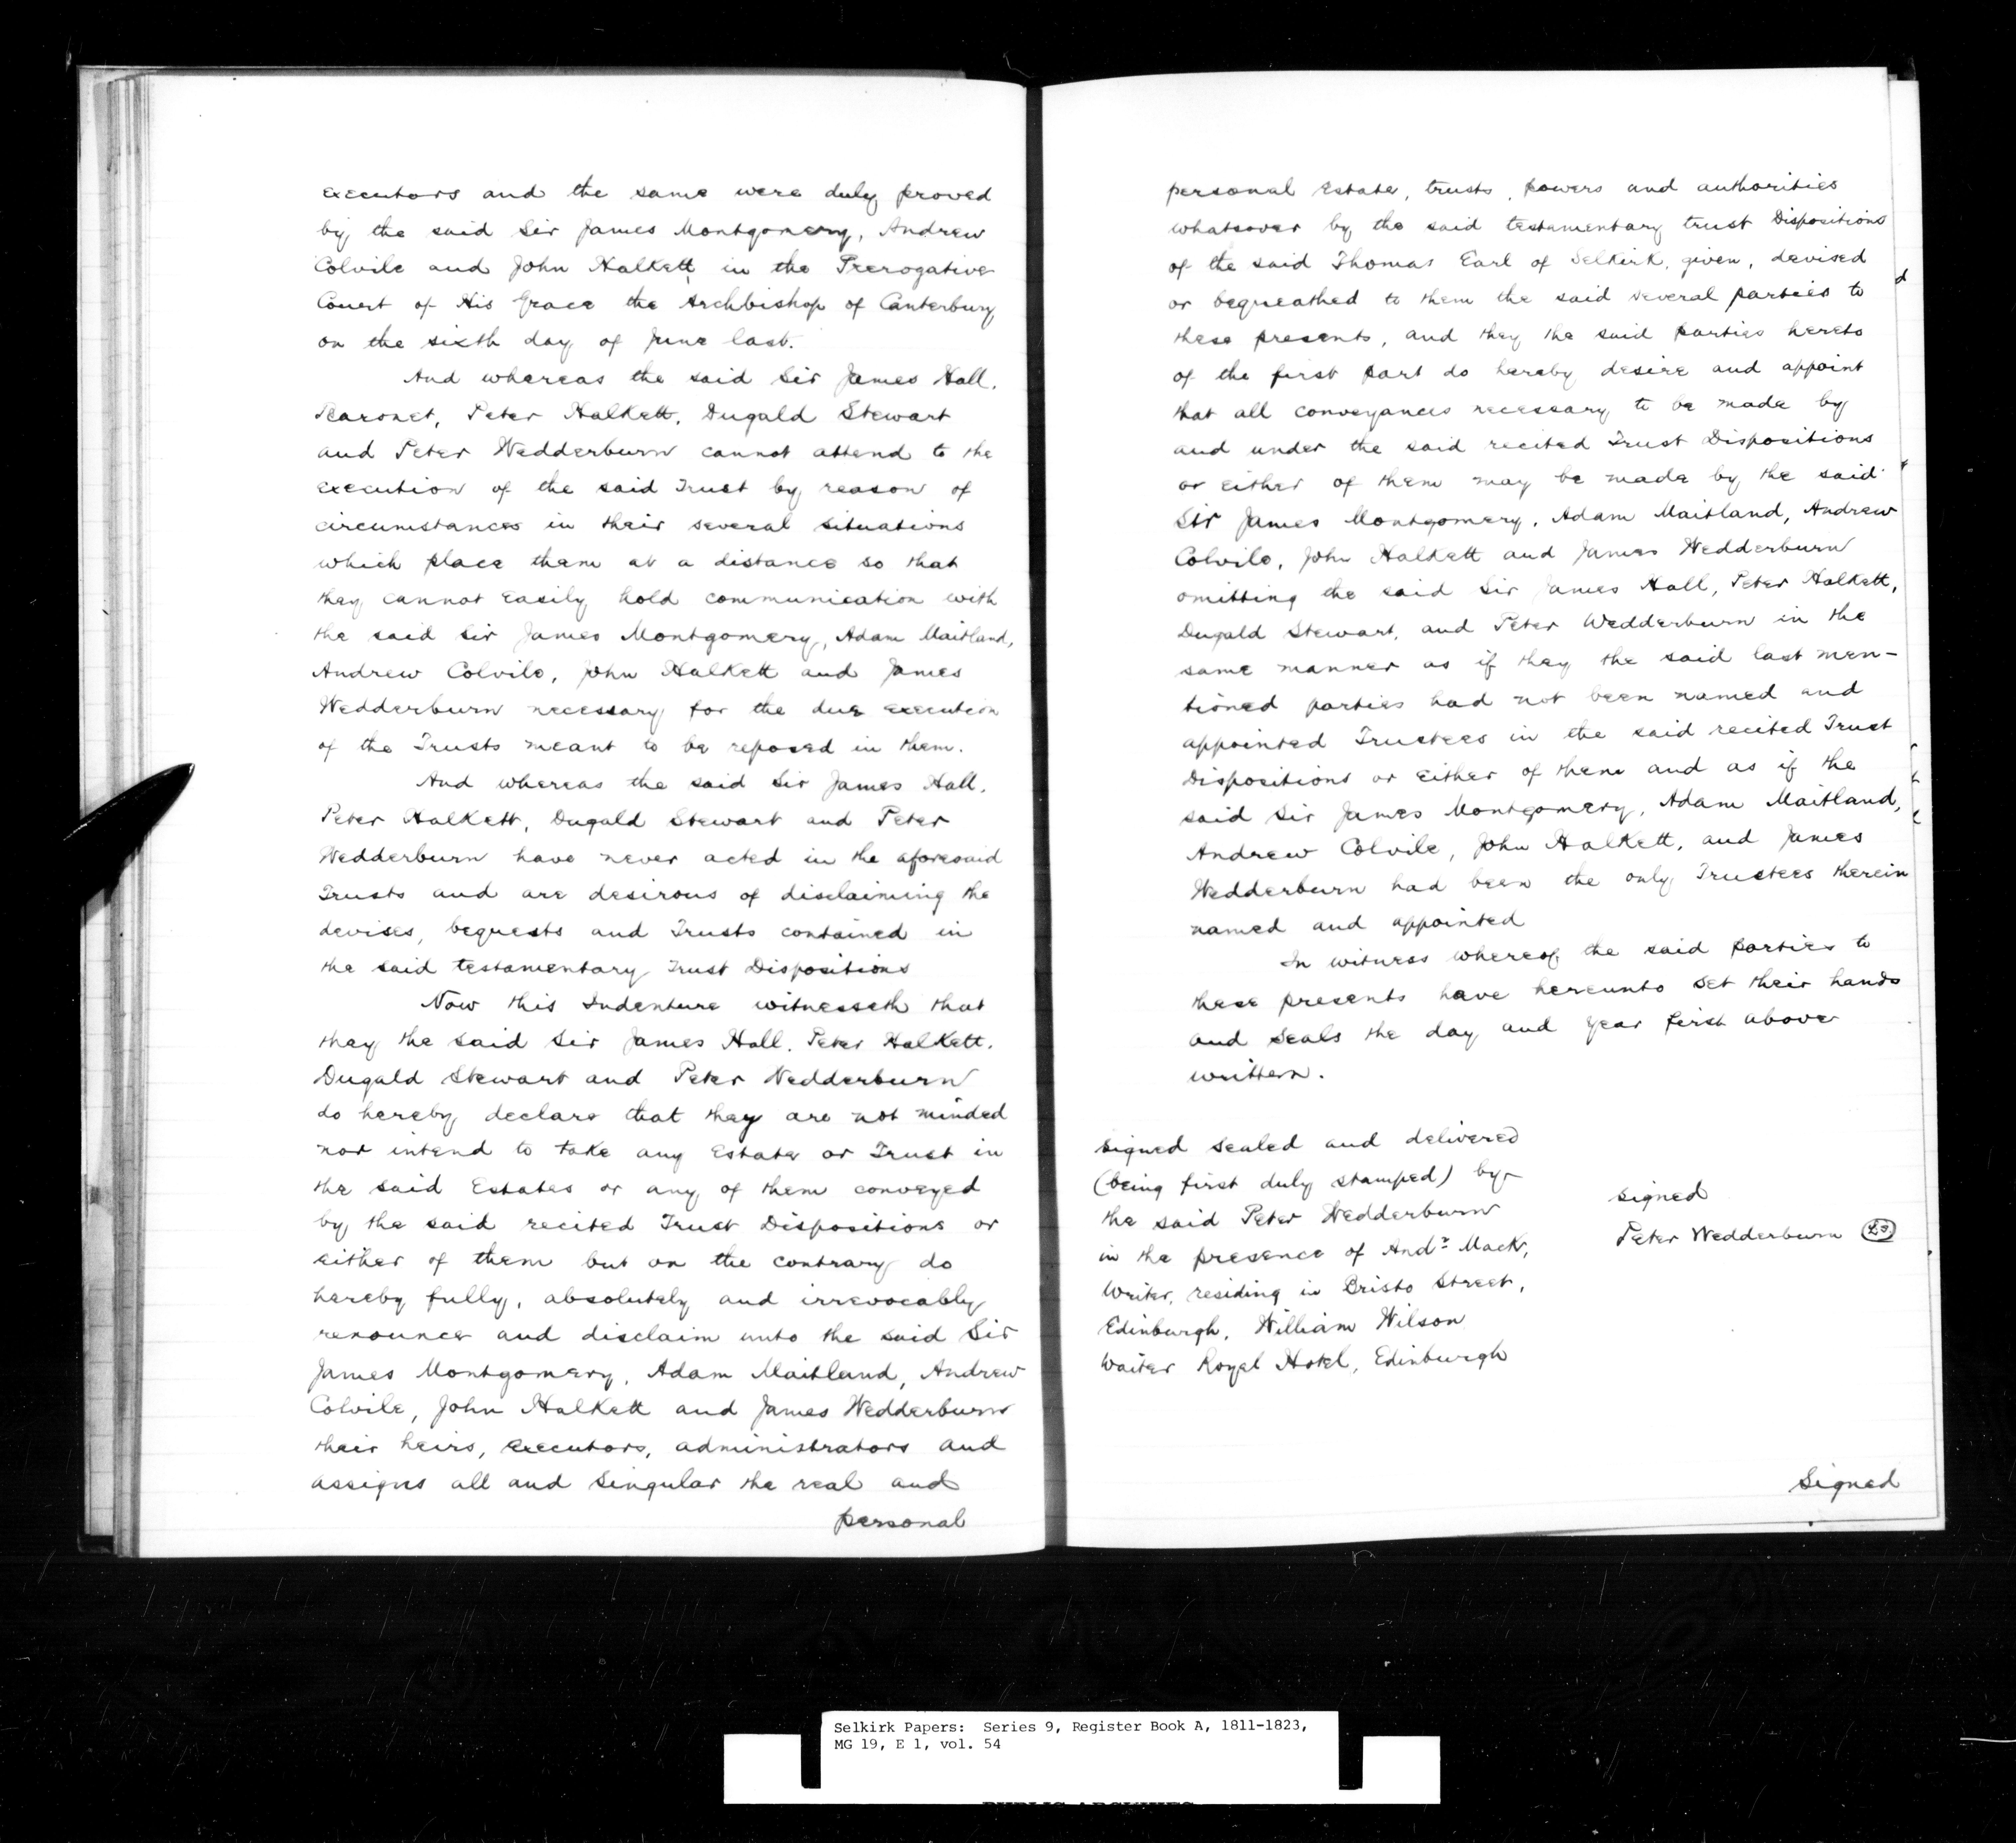 executors and the same were duly proved
by the said Sir James Montgomery, Andrew
Colvile and John Halkett in the Prerogative
Court of His Grace the Archbishop of Canterbury
on the sixth day of June last.
And whereas the said Sir James Hall,
Baronet, Peter Halkett, Dugald Stewart
and Peter Wedderburn cannot attend to the
execution of the said Trust by reason of
circumstances in their several situations
which place them at a distance so that
they cannot easily hold communication with
the said Sir James Montgomery, Adam Maitland,
Andrew Colvile, John Halkett and James
Wedderburn necessary for the due execution
of the Trusts meant to be reposed in them.
And whereas the said Sir James Hall,
Peter Halkett, Dugald Stewart and Peter
Wedderburn have never acted in the aforesaid
Trusts and are desirous of disclaiming the
devises, bequests and Trusts contained in
the said testamentary Trust Dispositions
Now this Indenture witnesseth that
they the said Sir James Hall, Peter Halkett,
Dugald Stewart and Peter Wedderburn
do hereby declare that they are not minded
nor intend to take any Estate or Trust in
the said Estates or any of them conveyed
by the said recited Trust Dispositions or
either of them but on the contrary do
hereby fully, absolutely and irrevocably
renounce and disclaim unto the said Sir
James Montgomery, Adam Maitland, Andrew
Colvile, John Halkett and James Wedderburn
their heirs, executors, administrators and
assigns all and singular the real and
personal
personal estate, trusts, powers and authorities
whatsover by the said testamentary trust Dispositions
of the said Thomas Earl of Selkirk, given, devised
or bequeathed to them the said several parties to
these presents, and they the said parties hereto
of the first part do hereby desire and appoint
that all conveyances necessary to be made by
and under the said recited Trust Dispositions
or either of them may be made by the said
Sir James Montgomery, Adam Maitland, Andrew
Colvile, John Halkett and James Wedderburn
omitting the said Sir James Hall, Peter Halkett,
Dugald Stewart, and Peter Wedderburn in the
same manner as if they the said last men-
tioned parties had not been named and
appointed Trustees in the said recited Trust
Dispositions or either of them and as if the
said Sir James Montgomery, Adam Maitland,
Andrew Colvile, John Halkett, and James
Wedderburn had been the only Trustees therein
named and appointed
In witness whereof the said parties to
these presents have hereunto set their hands
and seals the day and year first above
written.
Signed sealed and delivered
(being first duly stamped) by
the said Peter Wedderburn
in the presence of Andr Mack,
Writer, residing in Bristo Street,
Edinburgh, William Wilson
Waiter Royal Hotel, Edinburgh
signed
Peter Wedderburn LS
Signed
Selkirk Papers: Series 9, Register Book A, 1811-1823,
MG 19, E 1, vol. 54